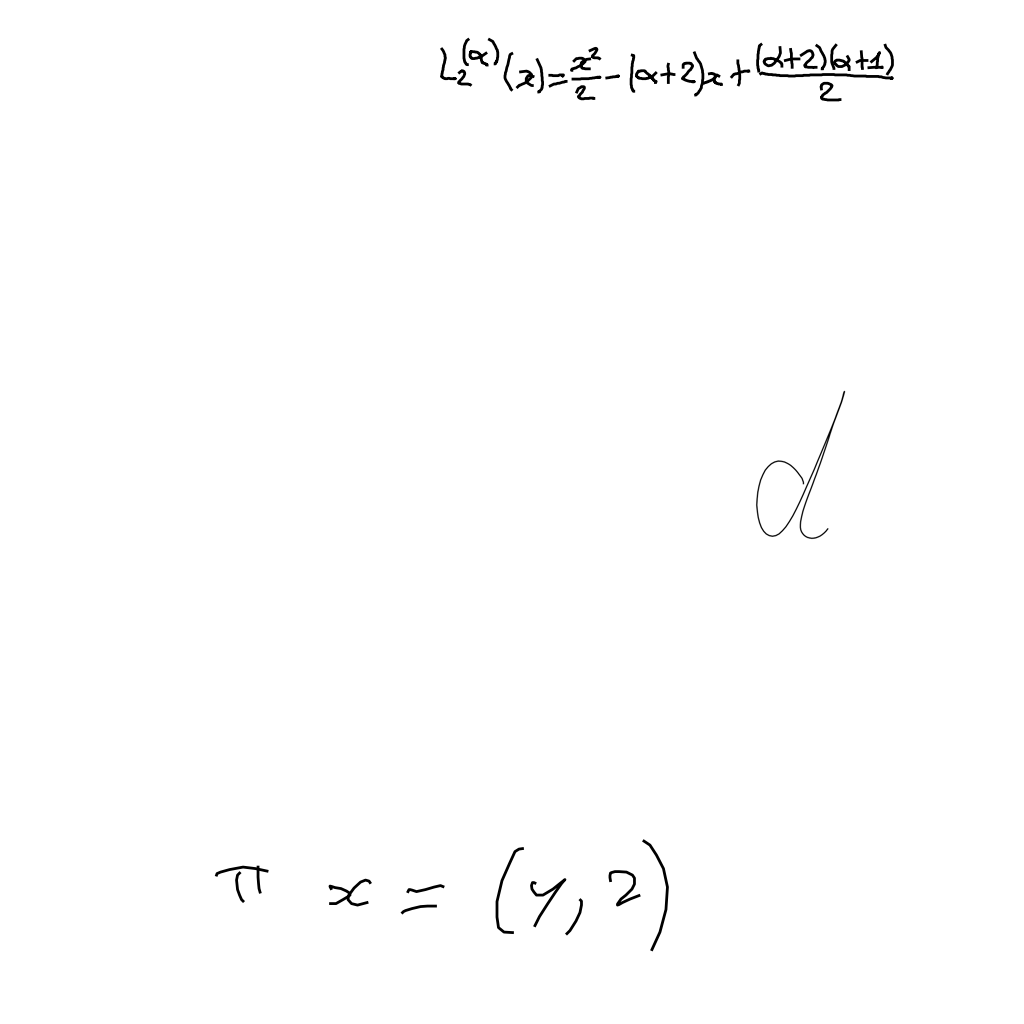 L_2^{(α)}(x) = \frac{x^2}{2} - (α+2)x + \frac{(α+2)(α+1)}{2}
d
π x = (y, z)